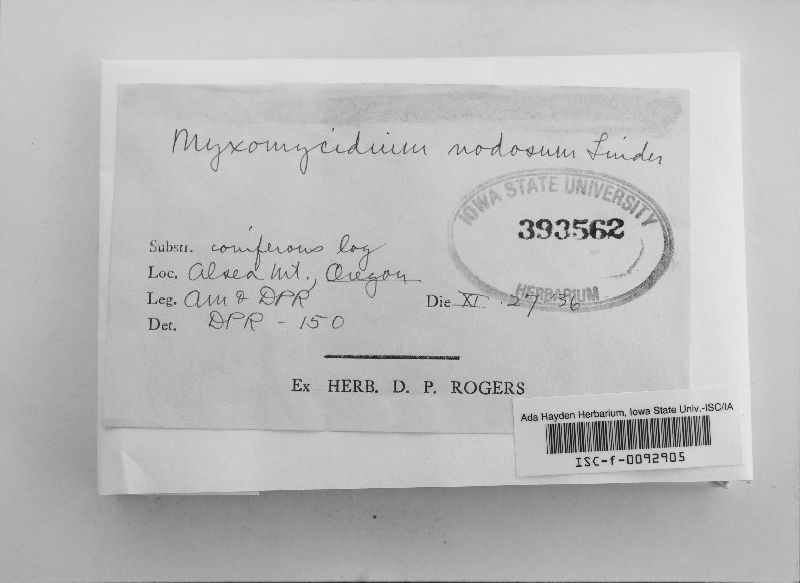 Myxomycidium nodosum Linder
IOWA STATE UNIVERSITY
393562
HERBARIUM
Substr. coniferous log
Loc. Alsea Mt., Oregon
Leg. AM & DPR
Die XI-27-36
Det. DPR - 150
Ex HERB. D. P. ROGERS
Ada Hayden Herbarium, Iowa State Univ.-ISC/IA
ISC-f-0092905